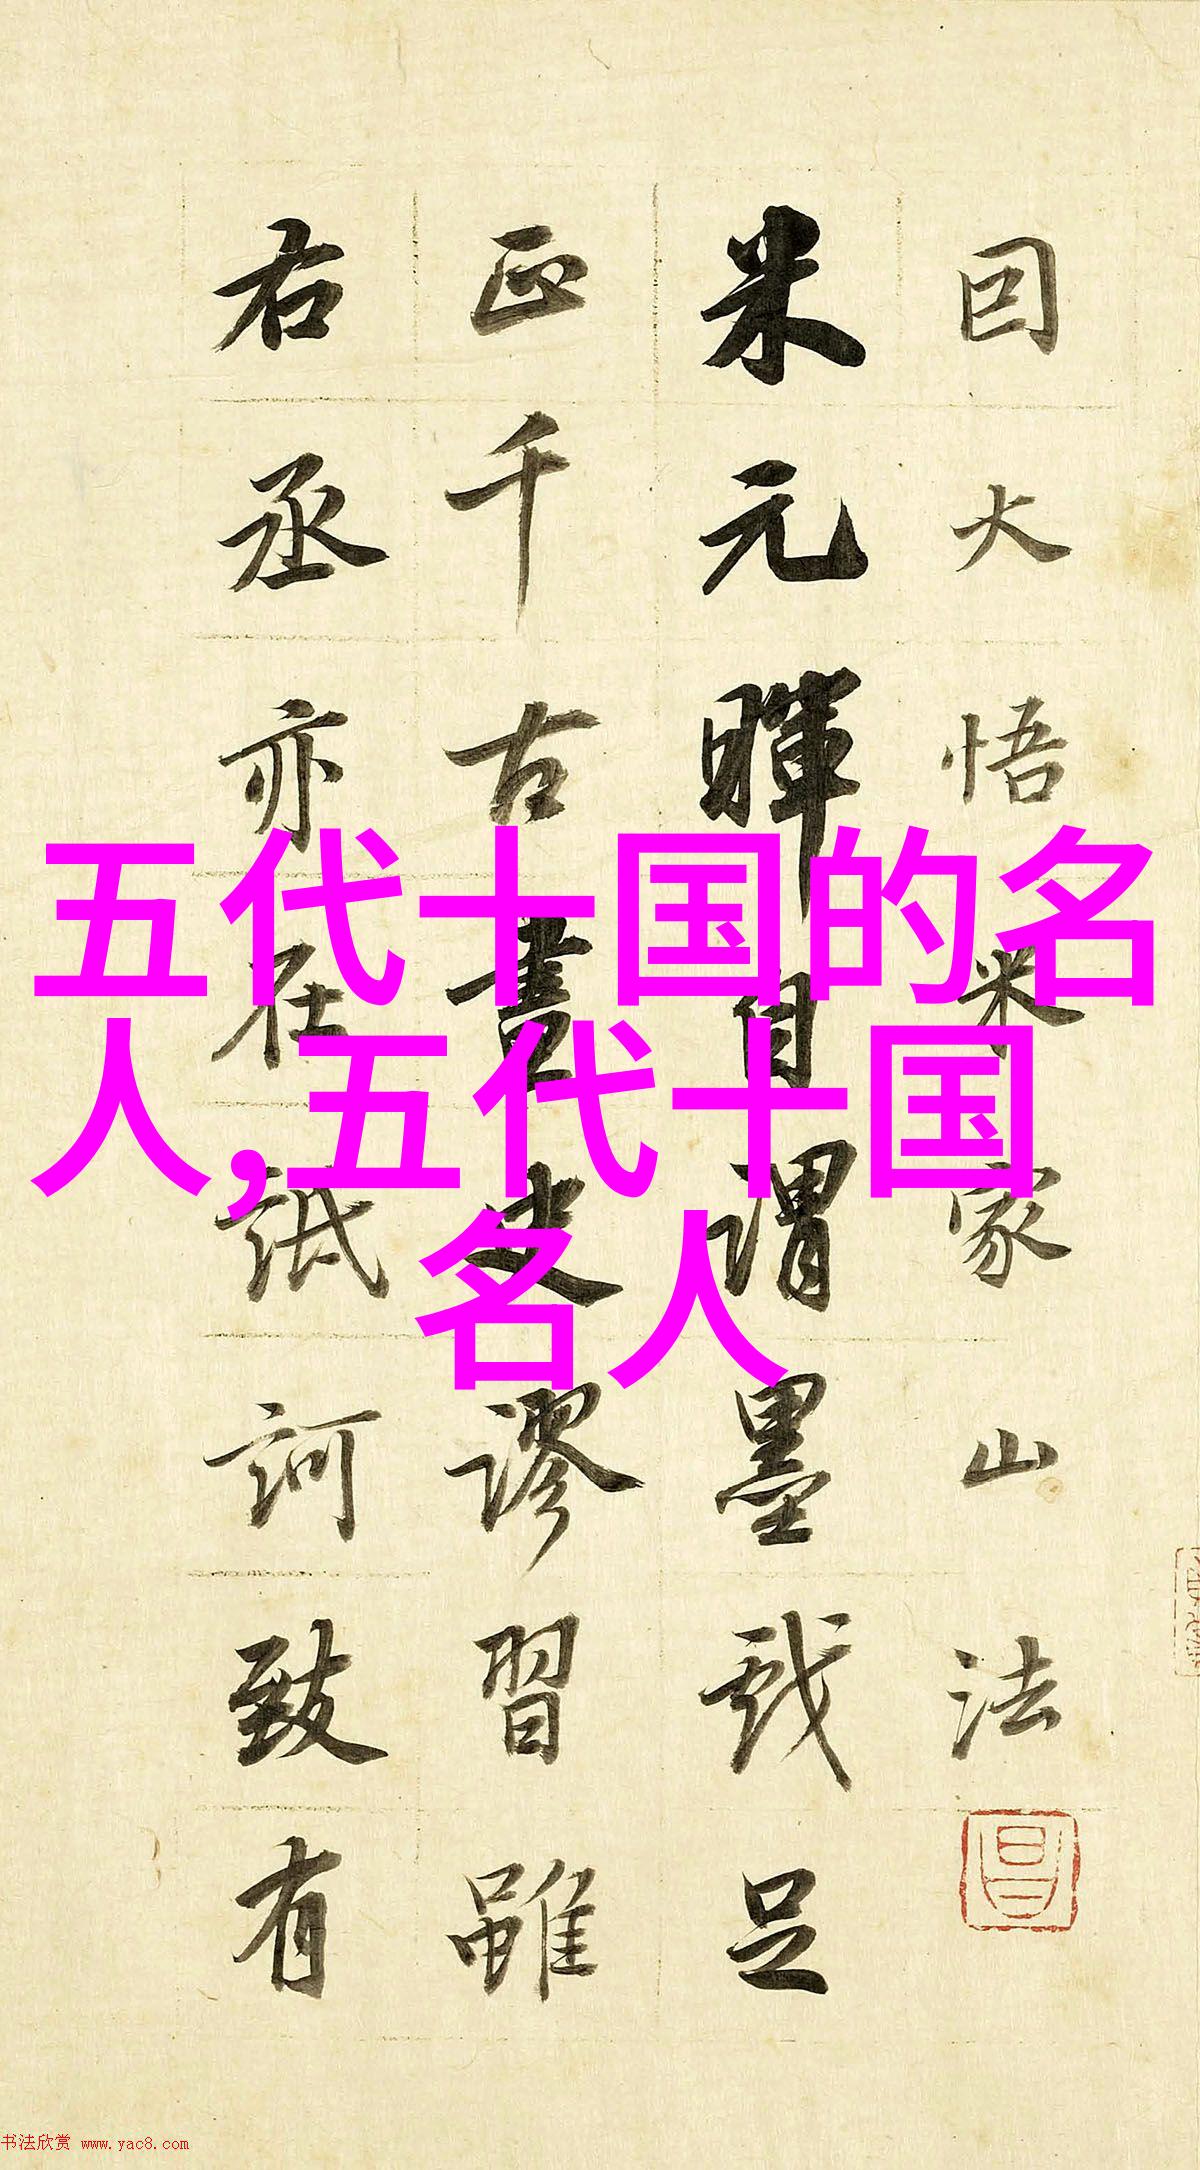 五代十国的名
人,五代十国
名人
囙大悟米家山法
米元暉自謂墨戲足
正千古畫史謬習雖
右丞亦在詆訶致有
书法欣赏 www.yac8.com